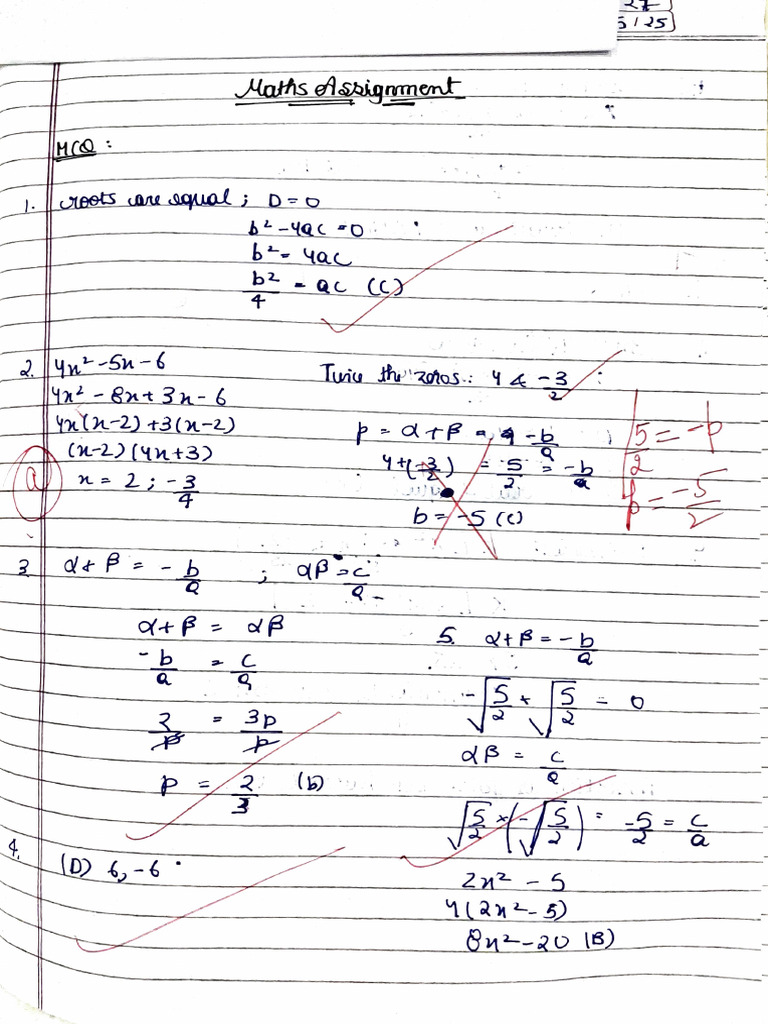 27
5/25
Maths Assignment
MCQ :
1. roots are equal ; D = 0
b² - 4ac = 0
b² = 4ac
b²/4 = ac (C)
2. 4x² - 5x - 6
4x² - 8x + 3x - 6
4x(x-2) + 3(x-2)
(x-2)(4x+3)
x = 2 ; -3/4
a
Twice the zeros : 4 & -3/2
p = α + β = -b/a
4 + (-3/2) = 5/2 = -b/a
b = -5 (C)
5/2 = -p
p = -5/2
3. α + β = -b/a ; αβ = c/a
α + β = αβ
-b/a = c/a
2/p = 3p/p
p = 2/3 (b)
4. (D) 6, -6
5. α + β = -b/a
-√5/2 + √5/2 = 0
αβ = c/a
√5/2 × (-√5/2) = -5/2 = c/a
2x² - 5
4(2x² - 5)
8x² - 20 (B)